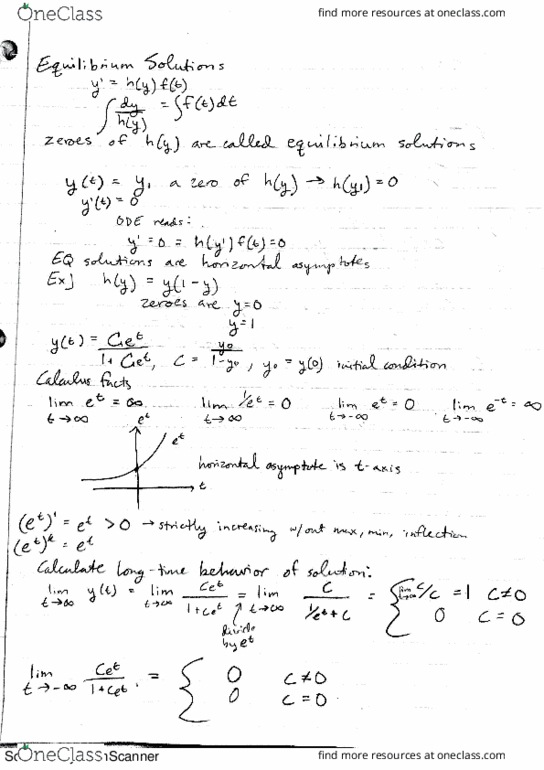 OneClass
find more resources at oneclass.com
Equilibrium Solutions
y' = h(y) f(t)
∫ dy/h(y) = ∫ f(t) dt
zeroes of h(y) are called equilibrium solutions
y(t) = y₁ a zero of h(y) → h(y₁) = 0
y'(t) = 0
ODE reads:
y' = 0 = h(y') f(t) = 0
EQ solutions are horizontal asymptotes
Ex] h(y) = y(1 - y)
zeroes are y = 0
y = 1
y(t) = Ce^t / 1 + Ce^t, C = y₀ / 1 - y₀, y₀ = y(0) initial condition
Calculus facts
lim t→∞ e^t = ∞ lim t→∞ 1/e^t = 0 lim t→-∞ e^t = 0 lim t→-∞ e^-t = ∞
e^t
e^t
horizontal asymptote is t-axis
t
(e^t)' = e^t > 0 → strictly increasing w/out max, min, inflection
(e^t)" = e^t
Calculate long-time behavior of solution:
lim t→∞ y(t) = lim t→∞ Ce^t / 1 + Ce^t = lim t→∞ C / 1/e^t + C = { lim t→∞ C/C = 1 C ≠ 0
0 C = 0
divide
by e^t
lim t→-∞ Ce^t / 1 + Ce^t = { 0 C ≠ 0
0 C = 0
OneClass
Scanner
find more resources at oneclass.com